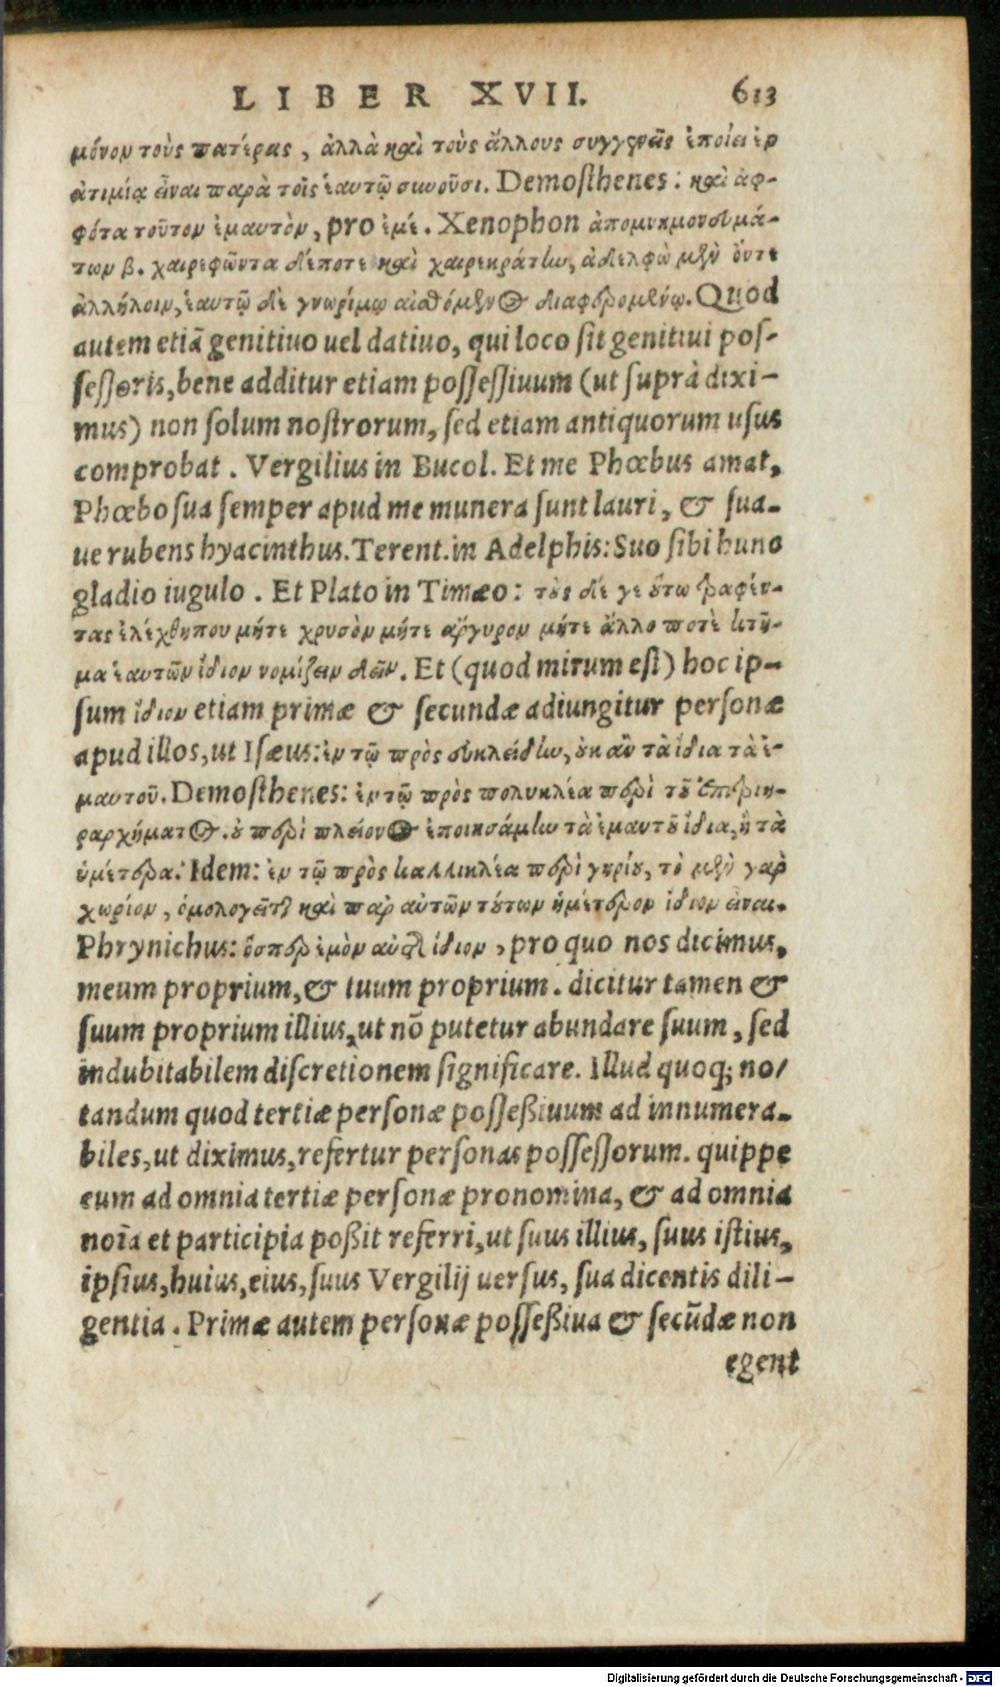 LIBER XVII. 613
μόνον τοὺς πατέρας, ἀλλὰ καὶ τοὺς ἄλλους συγγενεῖς ἐποίει ἐν
ἀτιμίᾳ εἶναι παρὰ τοῖς ἑαυτῷ συνοῦσι. Demosthenes: καὶ ἀφ-
φότα τοῦτον ἐμαυτὸν, pro ἐμέ. Xenophon ἀπομνημονευμά-
των β. χαιρεφῶντα δέ ποτε καὶ χαιρεκράτην, ἀδελφὼ μὲν ὄντε
ἀλλήλοιν, ἑαυτῷ δὲ γνωρίμω αἰσθόμενος διαφερομένω. Quod
autem etiã genitiuo uel datiuo, qui loco sit genitiui pos-
sessoris, bene additur etiam possessiuum (ut suprà dixi-
mus) non solum nostrorum, sed etiam antiquorum usus
comprobat. Vergilius in Bucol. Et me Phœbus amat,
Phœbo sua semper apud me munera sunt lauri, & sua-
ue rubens hyacinthus. Terent. in Adelphis: Suo sibi hunc
gladio iugulo. Et Plato in Timæo: τοὺς δέ γε οὕτω τραφέν-
τας ἐλέχθη που μήτε χρυσὸν μήτε ἄργυρον μήτε ἄλλο ποτὲ κτῆ-
μα ἑαυτῶν ἴδιον νομίζειν δεῖν. Et (quod mirum est) hoc ip-
sum ἴδιον etiam primæ & secundæ adiungitur personæ
apud illos, ut Isæus: ἐν τῷ πρὸς εὐκλείδην, οὐκ ἂν τὰ ἴδια τὰ ἐ-
μαυτοῦ. Demosthenes: ἐν τῷ πρὸς πολυκλέα περὶ τοῦ ἐπιτριη-
ραρχήματος. οὐ περὶ πλείονος ἐποιησάμην τὰ ἐμαυτοῦ ἴδια, ἢ τὰ
ὑμέτερα. Idem: ἐν τῷ πρὸς καλλικλέα περὶ χωρίου, τὸ μὲν γὰρ
χωρίον, ὁμολογεῖται καὶ παρ αὐτῶν τούτων ἡμέτερον ἴδιον εἶναι.
Phrynichus: ὅσπερ ἐμὸν ἴδιον, pro quo nos dicimus,
meum proprium, & tuum proprium. dicitur tamen &
suum proprium illius, ut nõ putetur abundare suum, sed
indubitabilem discretionem significare. Illud quoq; no/
tandum quod tertiæ personæ possessiuum ad innumera-
biles, ut diximus, refertur personas possessorum. quippe
cum ad omnia tertiæ personæ pronomina, & ad omnia
noĩa et participia possit referri, ut suus illius, suus istius,
ipsius, huius, eius, suus Vergilij uersus, sua dicentis dili-
gentia. Primæ autem personæ possessiua & secũdæ non
egent
Digitalisierung gefördert durch die Deutsche Forschungsgemeinschaft - DFG